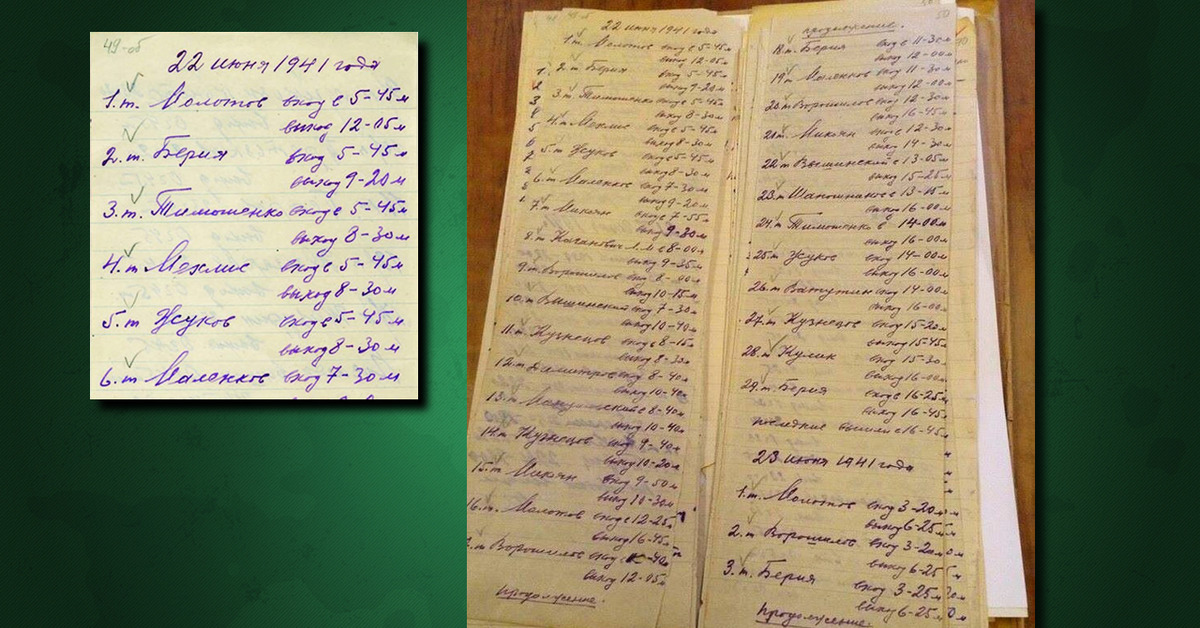 49-об
22 июня 1941 года
1. т. Молотов вход в 5-45 м
выход 12-05 м
2. т. Берия вход 5-45 м
выход 9-20 м
3. т. Тимошенко вход в 5-45 м
выход 8-30 м
4. т Мехлис вход в 5-45 м
выход 8-30 м
5. т Жуков вход в 5-45 м
выход 8-30 м
6. т Маленков вход 7-30 м
22 июня 1941 года
1. т. Молотов вход в 5-45 м
выход 12-05 м
2. т. Берия вход 5-45 м
выход 9-20 м
3. т. Тимошенко вход в 5-45 м
выход 8-30 м
4. т Мехлис вход в 5-45 м
выход 8-30 м
5. т Жуков вход в 5-45 м
выход 8-30 м
6. т. Маленков вход 7-30 м
выход 9-20 м
7. т. Микоян вход в 7-55 м
выход 9-30 м
8. т. Каганович Л.М в 8-00 м
выход 9-35 м
9. т. Ворошилов вход 8-00 м
выход 10-15 м
10. т Вышинский вход 7-30 м
выход 10-40 м
11. т. Кузнецов вход в 8-15 м
выход 8-30 м
12. т Димитров вход 8-40 м
выход 10-40 м
13. т. Мануильский в 8-40 м
выход 10-40 м
14. т Кузнецов вход 9-40 м
выход 10-20 м
15. т. Микоян вход 9-50 м
выход 10-30 м
16. т. Молотов вход в 12-25 м
выход 16-45 м
т Ворошилов вход
выход 12-05 м
продолжение.
50
продолжение.
18. т. Берия вход в 11-30 м
выход 12-00 м
19. т Маленков вход 11-30 м
выход 12-00 м
20. т Ворошилов вход 12-30 м
выход 16-45 м
т. Микоян вход 12-30 м
выход 14-30 м
22. т Вышинский в 13-05 м
выход 15-25 м
23. т Шапошников в 13-15 м
выход 16-00 м
24. т. Тимошенко в 14-00 м
выход 16-00 м
25. т Жуков вход 14-00 м
выход 16-00 м
26. т Ватутин вход 14-00 м
выход 16-00 м
27. т Кузнецов вход 15-20 м
выход 15-45 м
28. т Кулик вход 15-30 м
выход 16-00 м
29. т Берия вход 16-25 м
выход 16-45 м
последние вышли в 16-45 м
23 июня 1941 года
1. т. Молотов вход 3-20 м
выход 6-25 м
2. т Ворошилов вход 3-20 м
выход 6-25
3. т. Берия вход 3-25 м
выход 6-25 м
продолжение.